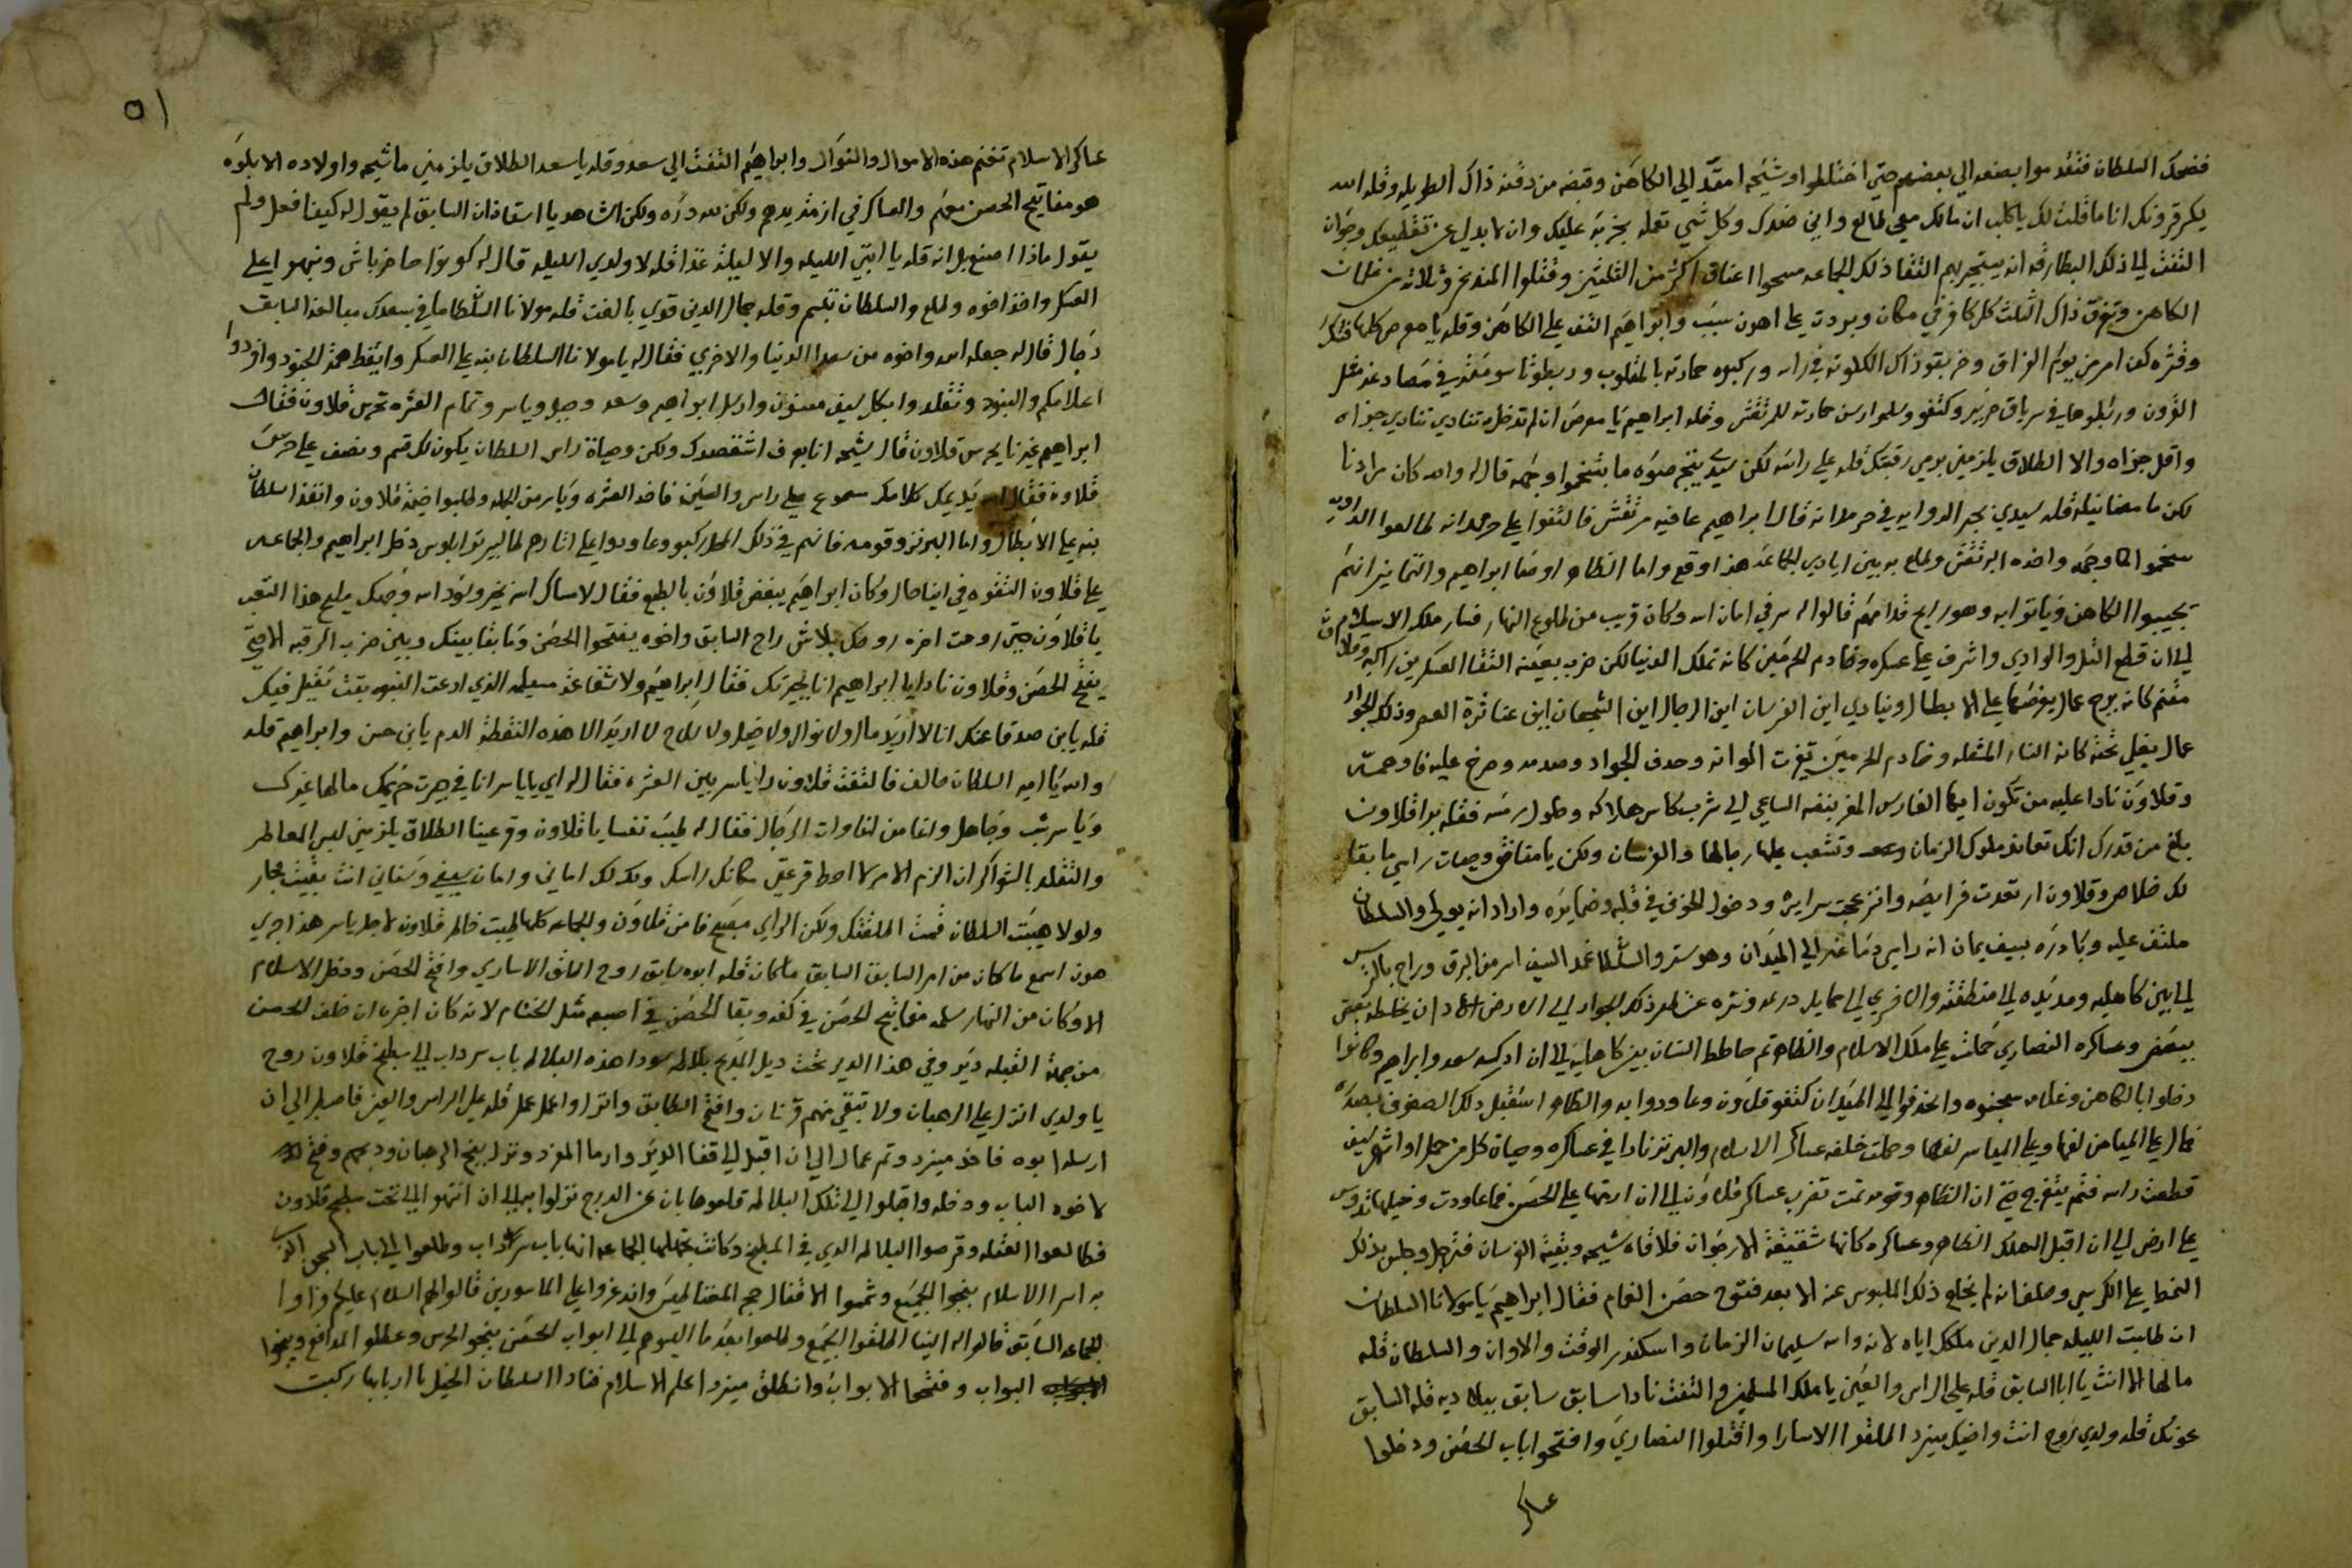 فضحك السلطان فتقدموا بعضهم الي بعضهم حتي اختلطوا وشيحه امقدّ الي الكاهن وقبضه من دقنه ذاك الطويله وقله الله
يكر قرونك انا ما قلت لك يا كلب ان مالك معي طالع واني ضدك وكل شي تعمله بخربه عليك وان لا بدلي عن تقطيعك وحزان
التفت الي ذلك البطارقه انه يستجير بهم التقا ذلك الجماعه مسحوا اعناق اكثر من الثلثين وقتلوا وثلاثه من غلمان
الكاهن وتفرق ذاك الثلث كل كافر في مكان وبردت علي اهون سبب وابراهيم التفت علي الكاهن وقله يا معرص
وقشره كمن امر من يوم الزاق وخر بقو ذاك الكلوته في راسه وركبوه حمارته بالمقلوب وربطوا
القرون وربلوها في سرياق حرير وكتفو وسلموا رسن حمارته للمرتقش وقله ابراهيم يا معرص ان لم تدخل تنادي تنادي جزاه
واقل جزاه والا الطلاق يلزمني برمي رقبتك قله علي راسه لكن سيدي ينجم صنوه ما بشخموا وجهه قال له والله كان مرادنا
لكن ما معنا نيله قله سيدي بحبر الدوايه في حرملانه قال ابراهيم عافيه مرتقش فالتقوا علي حرمدانه طالعوا الدوايه
سخموا لها وجهه واخده البرتقش وطلع به بين ايادي الجماعه هذا وقع واما الظاهر اوصا ابراهيم والتمانين انهم
تجيبوا الكاهن وياتوا به وهو رايح قدامهم قالوا له سر في امان الله وكان قريب من طلوع النهار فسار ملك الاسلام
الي ان قطع التل والوادي واشرف علي عسكره وخادم الحرمين كانه تملك الدنيا لكن ضرب بعينه التقا العسكرين راكبه وقلاون
مقنم كانه برج عمال يعرضها علي الابطال وينادي اين الفرسان اين الرجال اين الشجعان اين عناترة العصر وذلك الجواد
عمال يغلي تحته كانه النار المشعله وخادم الحرمين تغيرت الوانه وحدف الجواد وصدمه وصرخ عليه فاوهمه
وقلاون نادا عليه من تكون ايها الفارس المغر بنفسه الساعي الي شرب كاس هلاكه وحلول رمسه فقله برا قلاون
بلغ من قدرك انك تعاند ملوك الزمان وتشعب عليها رجالها والفرسان ولكن يا مناقق وحيات راسي ما بقا
لك خلاص وقلاون ارتعدت فرايصه وانزعجت سرايره ودخول الخوف في قلبه وضمايره واراد انه يولي والسلطان
ملتف عليه وبادره بسيف يمان انه رايس دماغه الي الميدان وهو ستر والسلطان غمد السيف اسرع من البرق وراح بالترس
الي بين كاهليه ومد يده الي منطقته والاخري الي حمايل درعه ونتره عن ظهر ذلك الجواد الي الارض اراد ان يخلطه بعض
ببعض وعساكره النصاري حملت علي ملك الاسلام والظاهر تم حاطط السنان بين كاهليه الي ان ادركه سعد وابراهيم وكانوا
دخلوا بالكاهن وغلامه سجنوه وانحدفوا الي الميدان كتفو قلاون وعاودوا به والظاهر استقبل ذلك الصفوف بصدره
فمال علي الميامن لفها وعلي المياسر لفها وحملت خلفه عساكر الاسلام والبرنز نادا في عساكره وحياة كل من حمل او اشهر سيف
قطعت راسه فتم يتفرج حتي ان الظاهر وقومه تمت تضرب عساكر قلاون الي ان ارتمها علي الحصن فما عاودت وخيلها تدوس
علي ارض الي ان اقبل الملك الظاهر وعساكره كانها شقيقة الارجوان فلاقاه شيحه وبقية الفرسان فترجل وجلس بذلك
الخطي علي الكرسي وحلف انه لم يخلع ذلك الملبوس عنه الا بعد فتوح حصن الغام فقال ابراهيم يا مولانا السلطان
ان طابت الليله جمال الدين ملكك اياه لانه والله سليمان الزمان واسكندر الوقت والاوان والسلطان قله
مالها الا انت يا ابا السابق قله علي الراس والعين يا ملك المسلمين والتفت نادا سابق سابق بين اديه قله السابق
عونك قله ولدي روح انت واخيك ميزد اطلقوا الاسارا واقتلوا النصاري وافتحوا باب الحصن ودخلوا
عساكر
٥١
عساكر الاسلام تغنم هذه الاموال والنوال وابراهيم التفت الي سعد وقله يا سعد الطلاق يلزمني ما شيحه واولاده الا بلوه
هو مفاتيح الحصن معهم والعساكر في ازمة يدهم ولكن لله دره ولكن الشاهد يا استاذان السابق لم يقول له كيف افعل ولم
يقول ماذا اصنع بل انه قله يا ابتي الليله والا ليلة غدا قله لا ولدي الليله قال له كونوا حاضرباش ونبهوا علي
العسكر واخذ اخوه وطلع والسلطان تبسم وقله جمال الدين قوي بالغت قله مولانا السلطان ما في بسعدك مبالغه السابق
رجال قال له جعله الله واخوه من سعدا الدنيا والاخري فقال له يا مولانا السلطان نبه علي العسكر وايقظ همة الجنود وافردوا
اعلامكم والبنود وتقلدوا بكل سيف مسنون وارسل ابراهيم وسعد وجبل وياسر وتمام العشره تحرس قلاون فقال
ابراهيم غيرنا يحرس قلاون قال شيحه انا بعرف اش تقصدك ولكن وحياة راس السلطان يكون لك قسم ونصف علي حرس
قلاون فقال له سيد يمل كلامك مسموع علي راس والعين فاخد العشره وياسر من الجمله وطلبوا خيمة قلاون وانفذ السلطان
ينبه علي الابطال واما البرنز وقومه فانهم في ذلك المحل ركبو وعاودوا علي اثارهم طالبير تو ابلوس دخل ابراهيم والجماعه
علي قلاون التقوه في اينا حال وكان ابراهيم يبغض قلاون بالطبع فقال لا مساك الله بخير وسود الله وجهك مليح هذا التعب
يا قلاون حتي روحت اخره روحك بلاش راح السابق واخوه يفتحوا الحصن وما بقا بينك وبين ضرب الرقبه الا حتي
يفتح الحصن وقلاون نادا يا ابراهيم انا بجيرتك فقال ابراهيم ولا شفاعة مسيلمه الذي ادعت النبوه بقت تقبل فيك
قله يا بن صدقا عنك انا لا اريد مال ولا نوال ولا خيل ولا سلاح لا اريد الا هذه النقطة الدم يا بن حسن وابراهيم قله
والله يا امير السلطان حالف فالتفت قلاون راي ياسر بين العشره فقال له اي يا ياسر انا في جيرت حريمك مالها غيرك
وياسر شب وجاهل ولفا من لفاوات الرجال فقال له طيب نفسا يا قلاون وقر عينا الطلاق يلزمني لبس المعاطر
والتقلد بالشواكر ان الزم الامر لا احط قرعتي مكانك راسك ولك لك اماني وامان سيفي وسناني انت بقيت بجار
ولولا هيبت السلطان قمت اطلقتك ولكن الراي مبصبح فامن قلاون والجماعه كلها طيبت خاطر قلاون لاجل ياسر هذا جري
هون اسمع ما كان من امر السابق السابق ما كان قله ابوه سابق روح اطلق الاساري وافتح الحصن ودخل الاسلام
الا وكان من النهار سلمه مفاتيح الحصن في كفه وبقا الحصن في اصبعه مثل الختام لانه كان اخبره ان خلف الحصن
من جهة القبله دير وفي هذا الدير تحت ديل المذبح بلاطه سودا هذه البلاطه باب سرداب الي مطبخ قلاون روح
يا ولدي انزل علي الرهبان ولا تبقي منهم قرنان وافتح الطابق وانزلوا اعمل عمل قله علي الراس والعين فاصبر الي ان
ارسله ابوه فاخد ميزرد وتم عمال الي ان اقبل الي قفا الدير وارما المفرد ونزل بنج الرهبان ودبحهم وفتح
لاخوه الباب ودخله واقبلوا الي تلك البلاطه قلعوها بان عن الدرج نزلوا به الي ان انتهوا الي تحت مطبخ قلاون
فطالعوا العتله وقرصوا البلاطه الذي في المطبخ وكانت يجهلها الجماعه انها باب سرداب وطلعوا الي باب السجن الذي
به اسرا الاسلام بنجوا الجميع وشمموا الاقفال حجر المغناطيس واندعزوا علي الماسورين قالوا لهم السلام عليكم
الجماعه السابق قالوا له الينا اطلقوا الجميع وطلعوا بعد ما اليهم الي ابواب الحصن بنجو الحرس وعطلو المدافع وبنجوا
البواب وفتحوا الابواب وانطلق ميزرد اعلم الاسلام فنادا السلطان الخيل يا اربابها ركبت